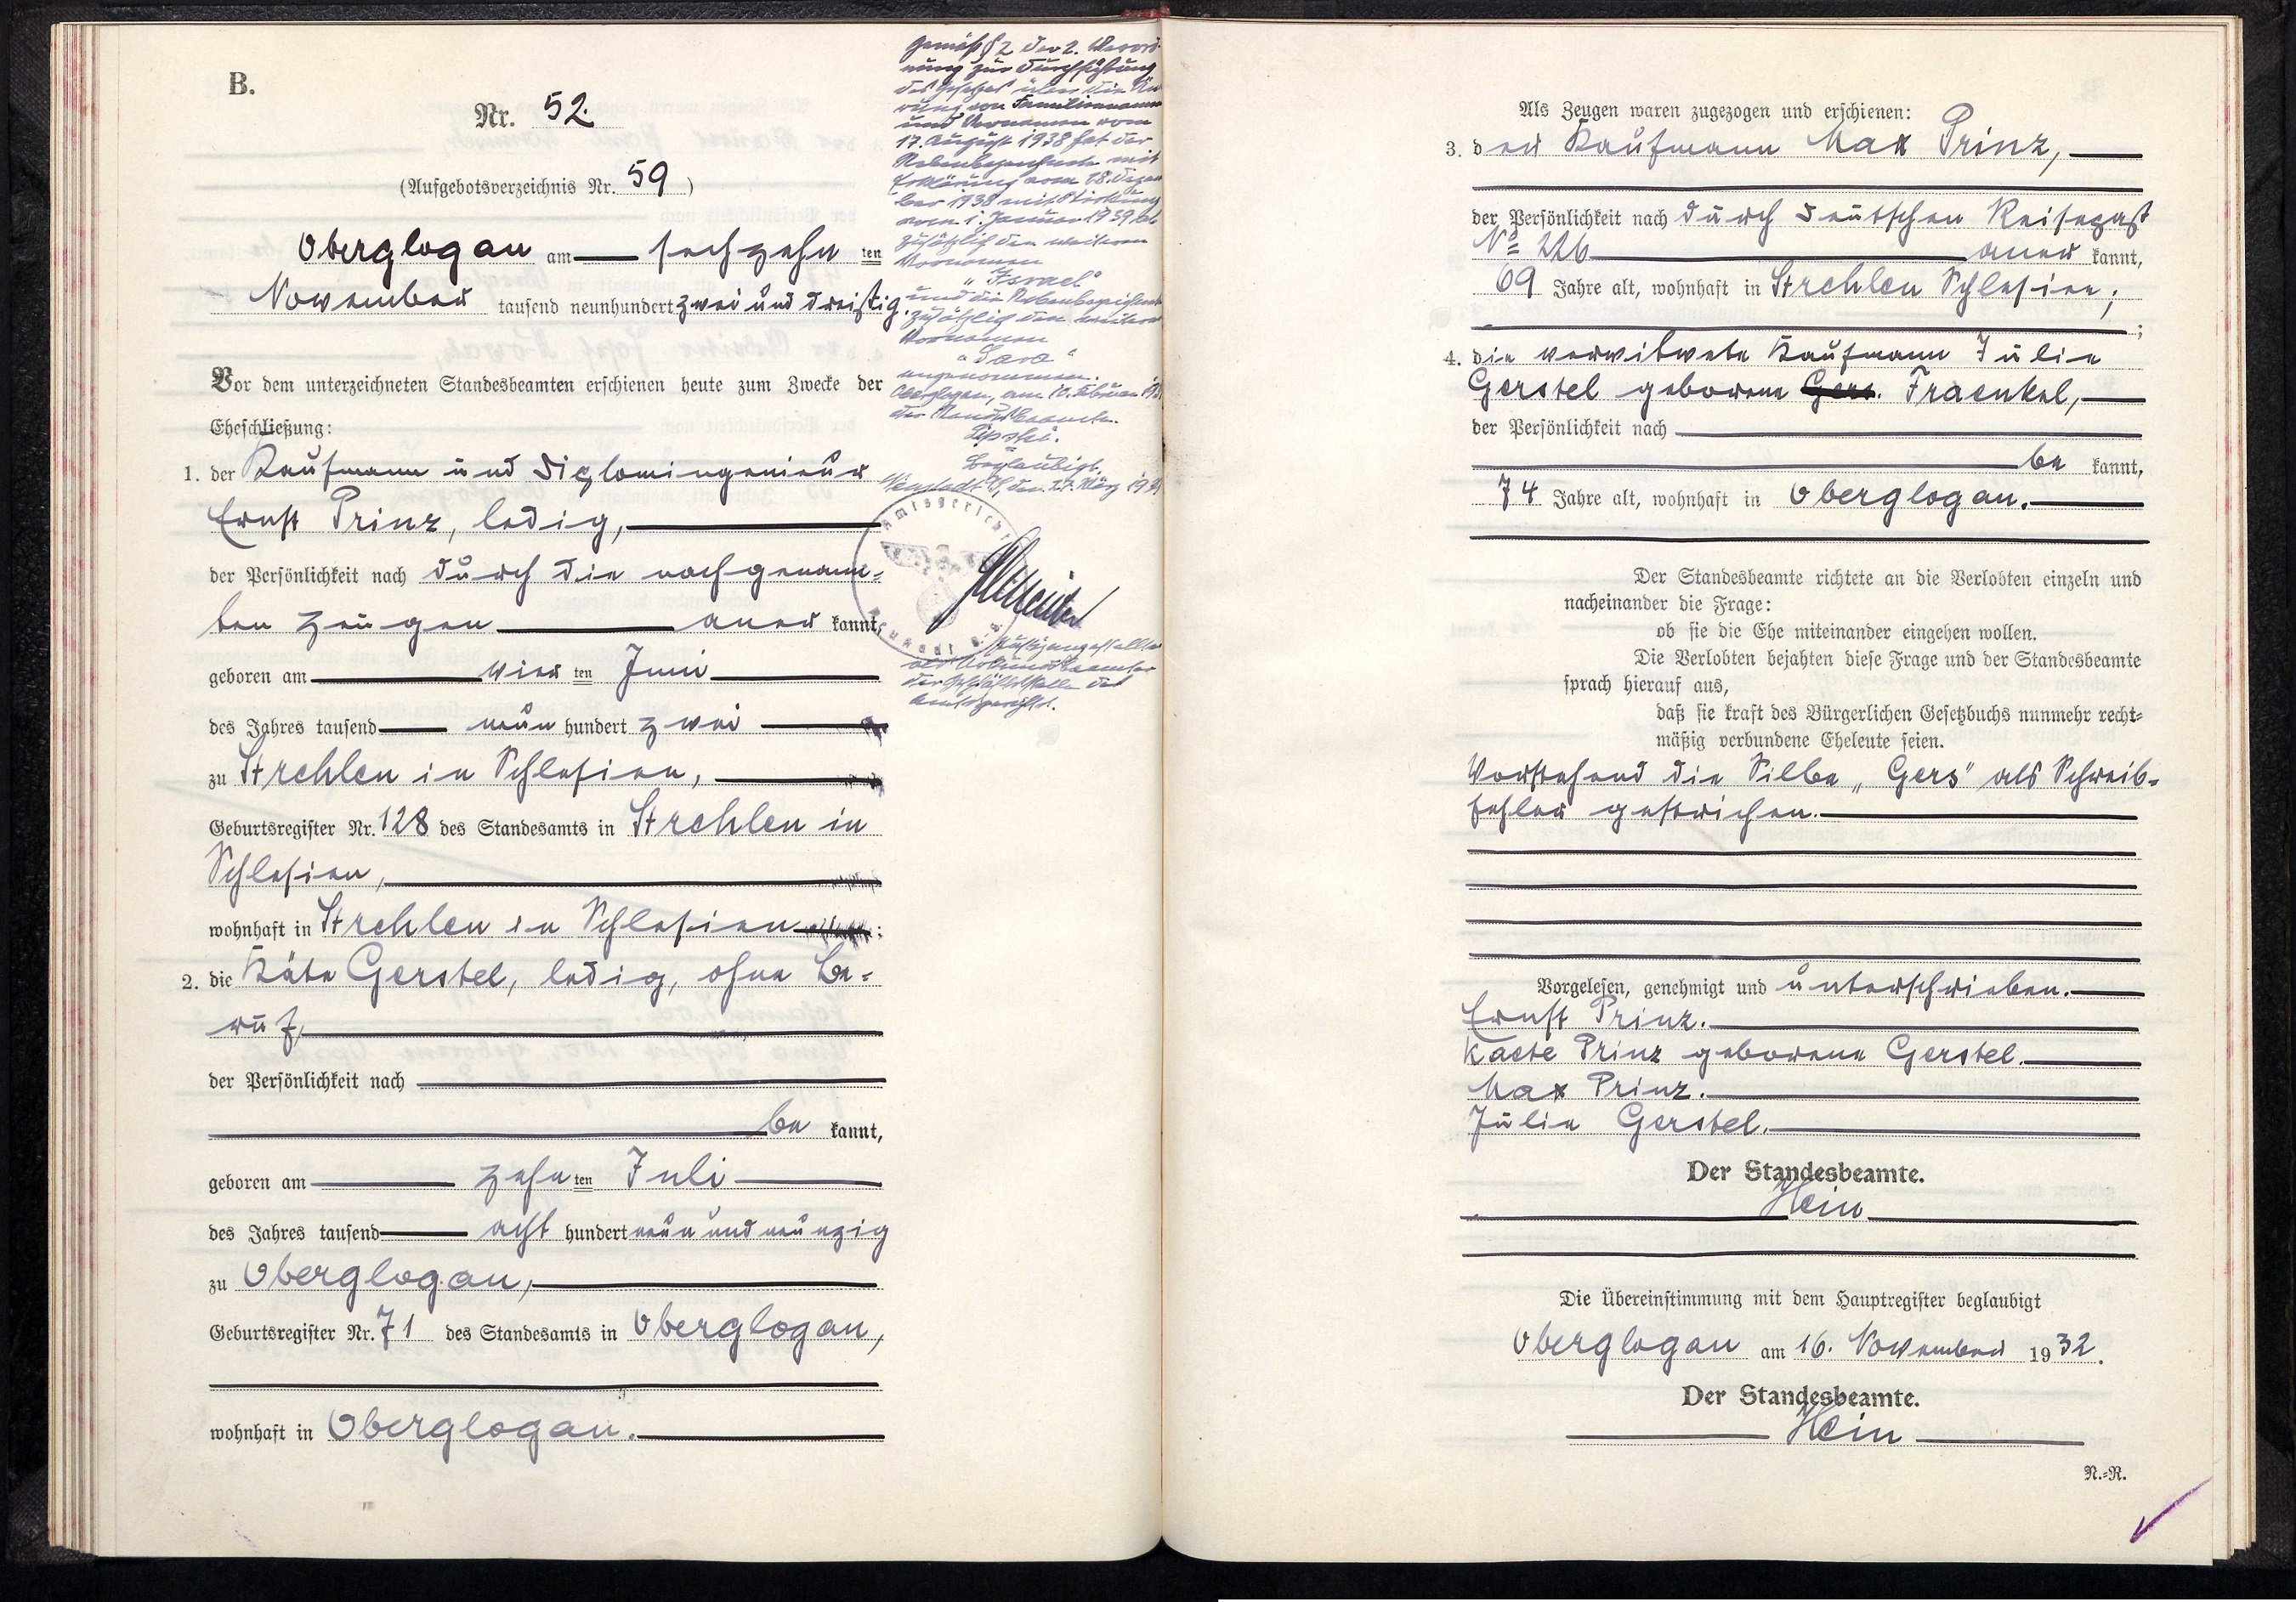 B.
Nr. 52.
(Aufgebotsverzeichnis Nr. 59)
Oberglogau am sechzehn ten
November tausend neunhundert zwei und dreißig.
Vor dem unterzeichneten Standesbeamten erschienen heute zum Zwecke der
Eheschließung:
1. der Kaufmann und Diplomingenieur
Ernst Prinz, ledig,
der Persönlichkeit nach durch die nachgenann-
ten Zeugen aner kannt,
geboren am vier ten Juni
des Jahres tausend neun hundert zwei
zu Strehlen in Schlesien,
Geburtsregister Nr. 128 des Standesamts in Strehlen in
Schlesien,
wohnhaft in Strehlen in Schlesien;
2. die Käte Gerstel, ledig, ohne Be-
ruf,
der Persönlichkeit nach
be kannt,
geboren am zehn ten Juli
des Jahres tausend acht hundert neun und neunzig
zu Oberglogau,
Geburtsregister Nr. 71 des Standesamts in Oberglogau,
wohnhaft in Oberglogau.
Gemäß § 2 der 2. Verord-
nung zur Durchführung
des Gesetzes über die Än-
rung von Familiennamen
und Vornamen vom
17. August 1938 hat der
Nebenbezeichnete mit
Erklärung vom 28. Dezem
ber 1938 mit Wirkung
vom 1. Januar 1939 ab
zusätzlich den weiteren
Vornamen
"Israel"
und die Nebenbezeichnete
zusätzlich den weiteren
Vornamen
"Sara"
angenommen.
Oberglogau, am 10. Februar 19
der Standesbeamte.
Beglaubigt.
Neustadt OS, den 27. März 19
Amtsgericht
Justizangestellter
als Urkundsbeamter
der Geschäftsstelle des
Amtsgerichts.
Als Zeugen waren zugezogen und erschienen:
3. der Kaufmann Max Prinz,
der Persönlichkeit nach durch deutschen Reisepaß
No 226 aner kannt,
69 Jahre alt, wohnhaft in Strehlen Schlesien;
;
4. die verwitwete Kaufmann Julie
Gerstel geborene Gers. Fraenkel,
der Persönlichkeit nach
be kannt,
74 Jahre alt, wohnhaft in Oberglogau.
Der Standesbeamte richtete an die Verlobten einzeln und
nacheinander die Frage:
ob sie die Ehe miteinander eingehen wollen.
Die Verlobten bejahten diese Frage und der Standesbeamte
sprach hierauf aus,
daß sie kraft des Bürgerlichen Gesetzbuchs nunmehr recht-
mäßig verbundene Eheleute seien.
Vorstehend die Silbe „Gers" als Schreib-
fehler gestrichen.
Vorgelesen, genehmigt und unterschrieben.
Ernst Prinz.
Kaete Prinz geborene Gerstel.
Max Prinz.
Julie Gerstel.
Der Standesbeamte.
Hein
Die Übereinstimmung mit dem Hauptregister beglaubigt
Oberglogau am 16. November 1932.
Der Standesbeamte.
Hein
N.-R.